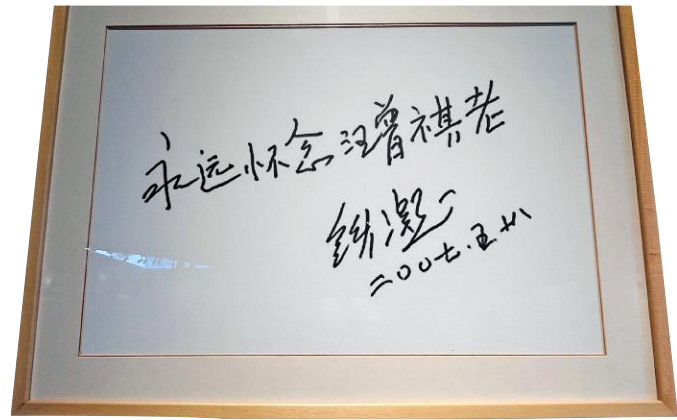 永远怀念汪曾祺老
铁凝
二〇〇七.五.十八